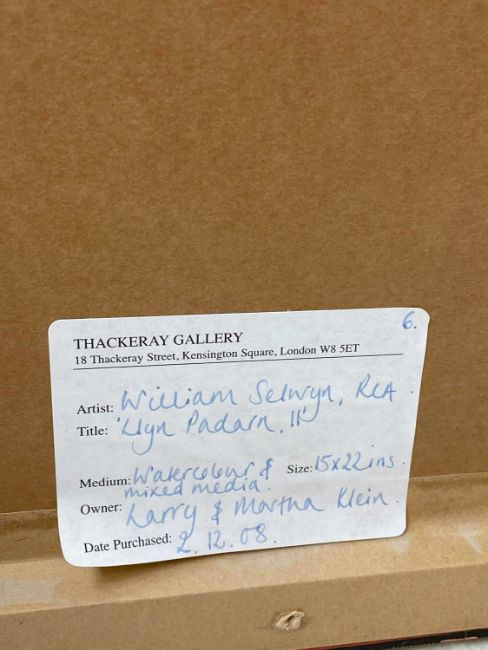 6.
THACKERAY GALLERY
18 Thackeray Street, Kensington Square, London W8 5ET
Artist: William Selwyn, RCA.
Title: 'Llyn Padarn, II'
Medium: Watercolour & mixed media. Size: 15x22ins.
Owner: Larry & Martha Klein.
Date Purchased: 2.12.08.